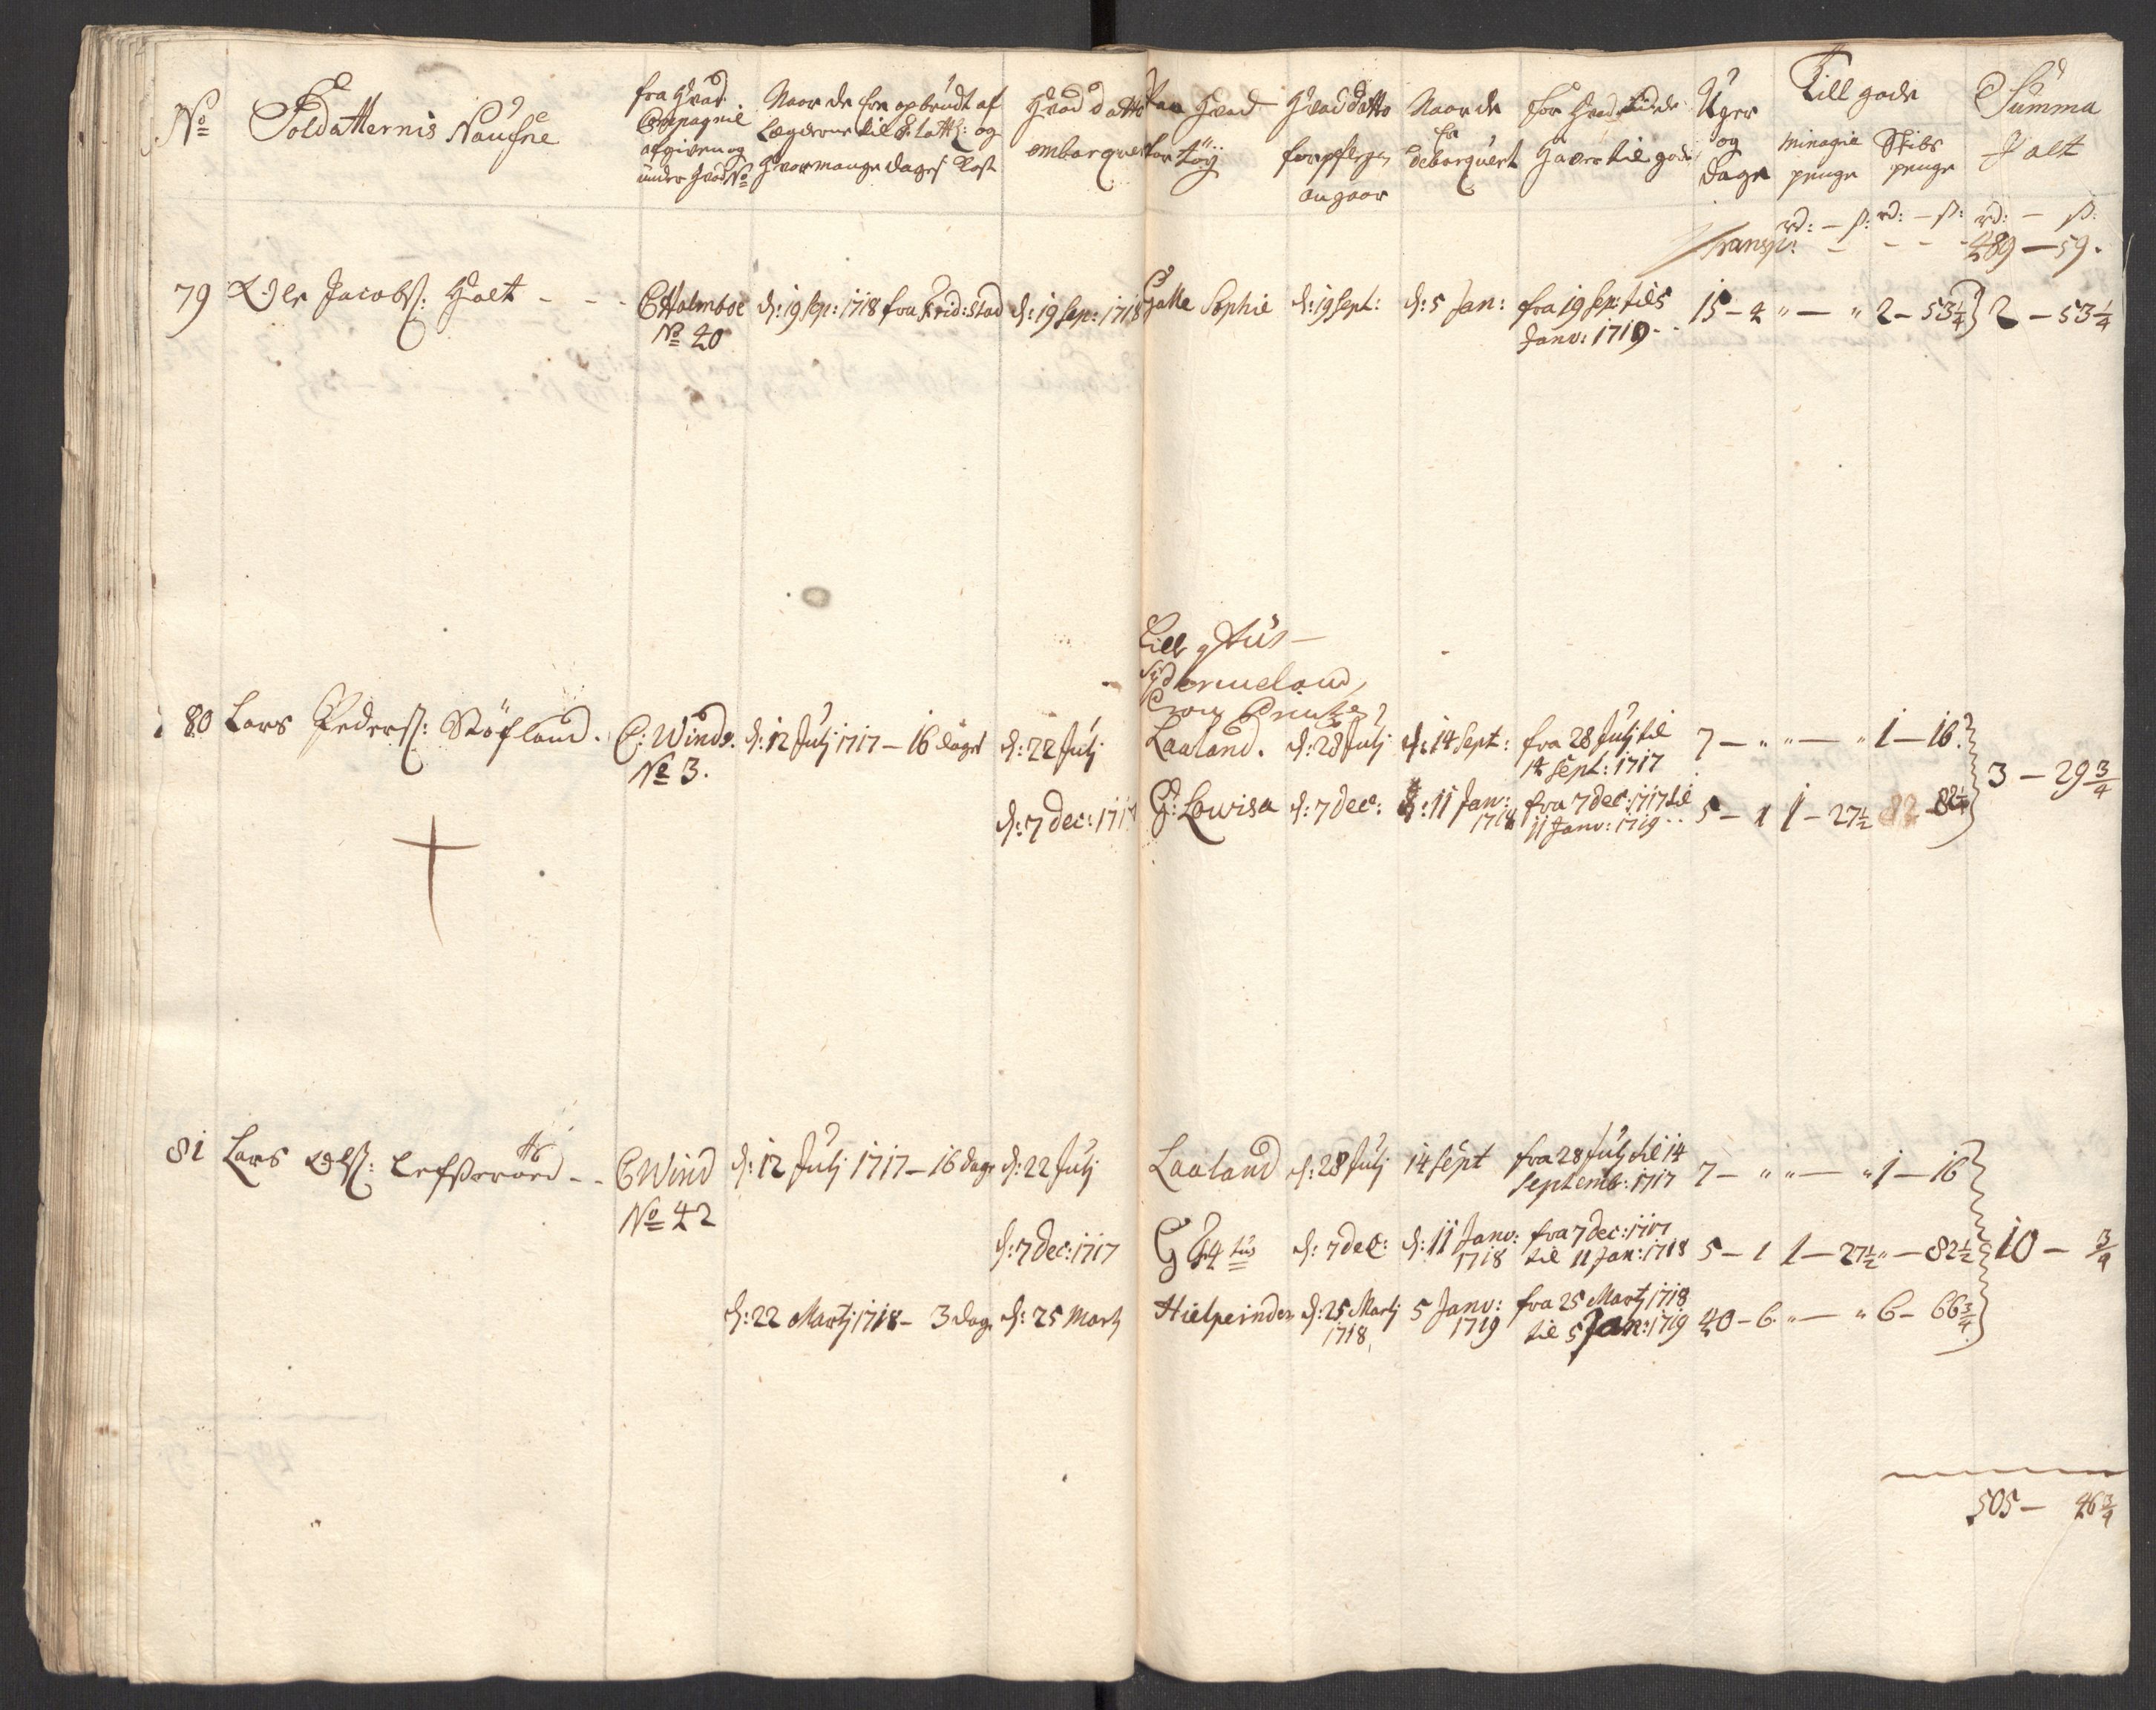 No Soldatternis Naufne
fra Hvad Compagnie afgiven og under Hvad No
Naar de før opbrudt af Lægderne til og Hvormange dages Kost
Hvad datto embarquert
Paa Hvad far töy
Hvad datto forpflegn angaar
Naar de er debarquert
for Hvad tid de Haver til gode
Uger og dage
Till gode
minagie penge
Skibs penge
Summa J alt
rd: – s: rd: – s: rd: – s:
Transp: – – – 489 – 59.
79 Ole Jacobs: Holt - - -
C Holmboe No 40
d: 19 Sep: 1718 fra Frid: stad
d: 19 Sep: 1718
Galle Sophie
d: 19 Sept:
d: 5 Jan:
fra 19 Sep: til 5 Janv: 1719 - -
15 – 4 " – " 2 – 53 1/4 2 – 53 1/4
80 Lars Peders: Röfland.
C: Wind. No 3.
d: 12 Julj 1717 – 16 dages
d: 22 Julj
Laaland.
d: 28 Julj
d: 14 Sept:
fra 28 Julj til 14 Sept: 1717
7 – " " – " 1 – 16.
3 – 29 3/4
d: 7 dec: 1717
G: Lowisa
d: 7 dec:
d: 11 Jan: 1718
fra 7 dec: 1717 til 11 Janv: 1719 - -
5 – 1 1 – 27 1/2
81 Lars Ols:
C Wind No 42
d: 12 Julj 1717 – 16 dage
d: 22 Julj
Laaland
d: 28 Julj
14 Sept
fra 28 Julj til 14 Septemb: 1717
7 – " " – " 1 – 16
d: 7 dec: 1717
d: 7 dec:
d: 11 Janv: 1718
fra 7 dec: 1717 til 11 Jan: 1718
5 – 1 1 – 27 1/2 " – 82 1/2
10 – 3/4
d: 22 Martj 1718 – 3 dage
d: 25 Martj
Hielpeinden
d: 25 Martj 1718,
5 Janv: 1719
fra 25 Martj 1718 til 5 Jan: 1719
40 – 6. " – " 6 – 66 3/4
505 – 46 3/4